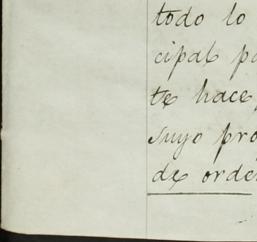 todo lo
cipal pa
te hace
suyo pro
de orde